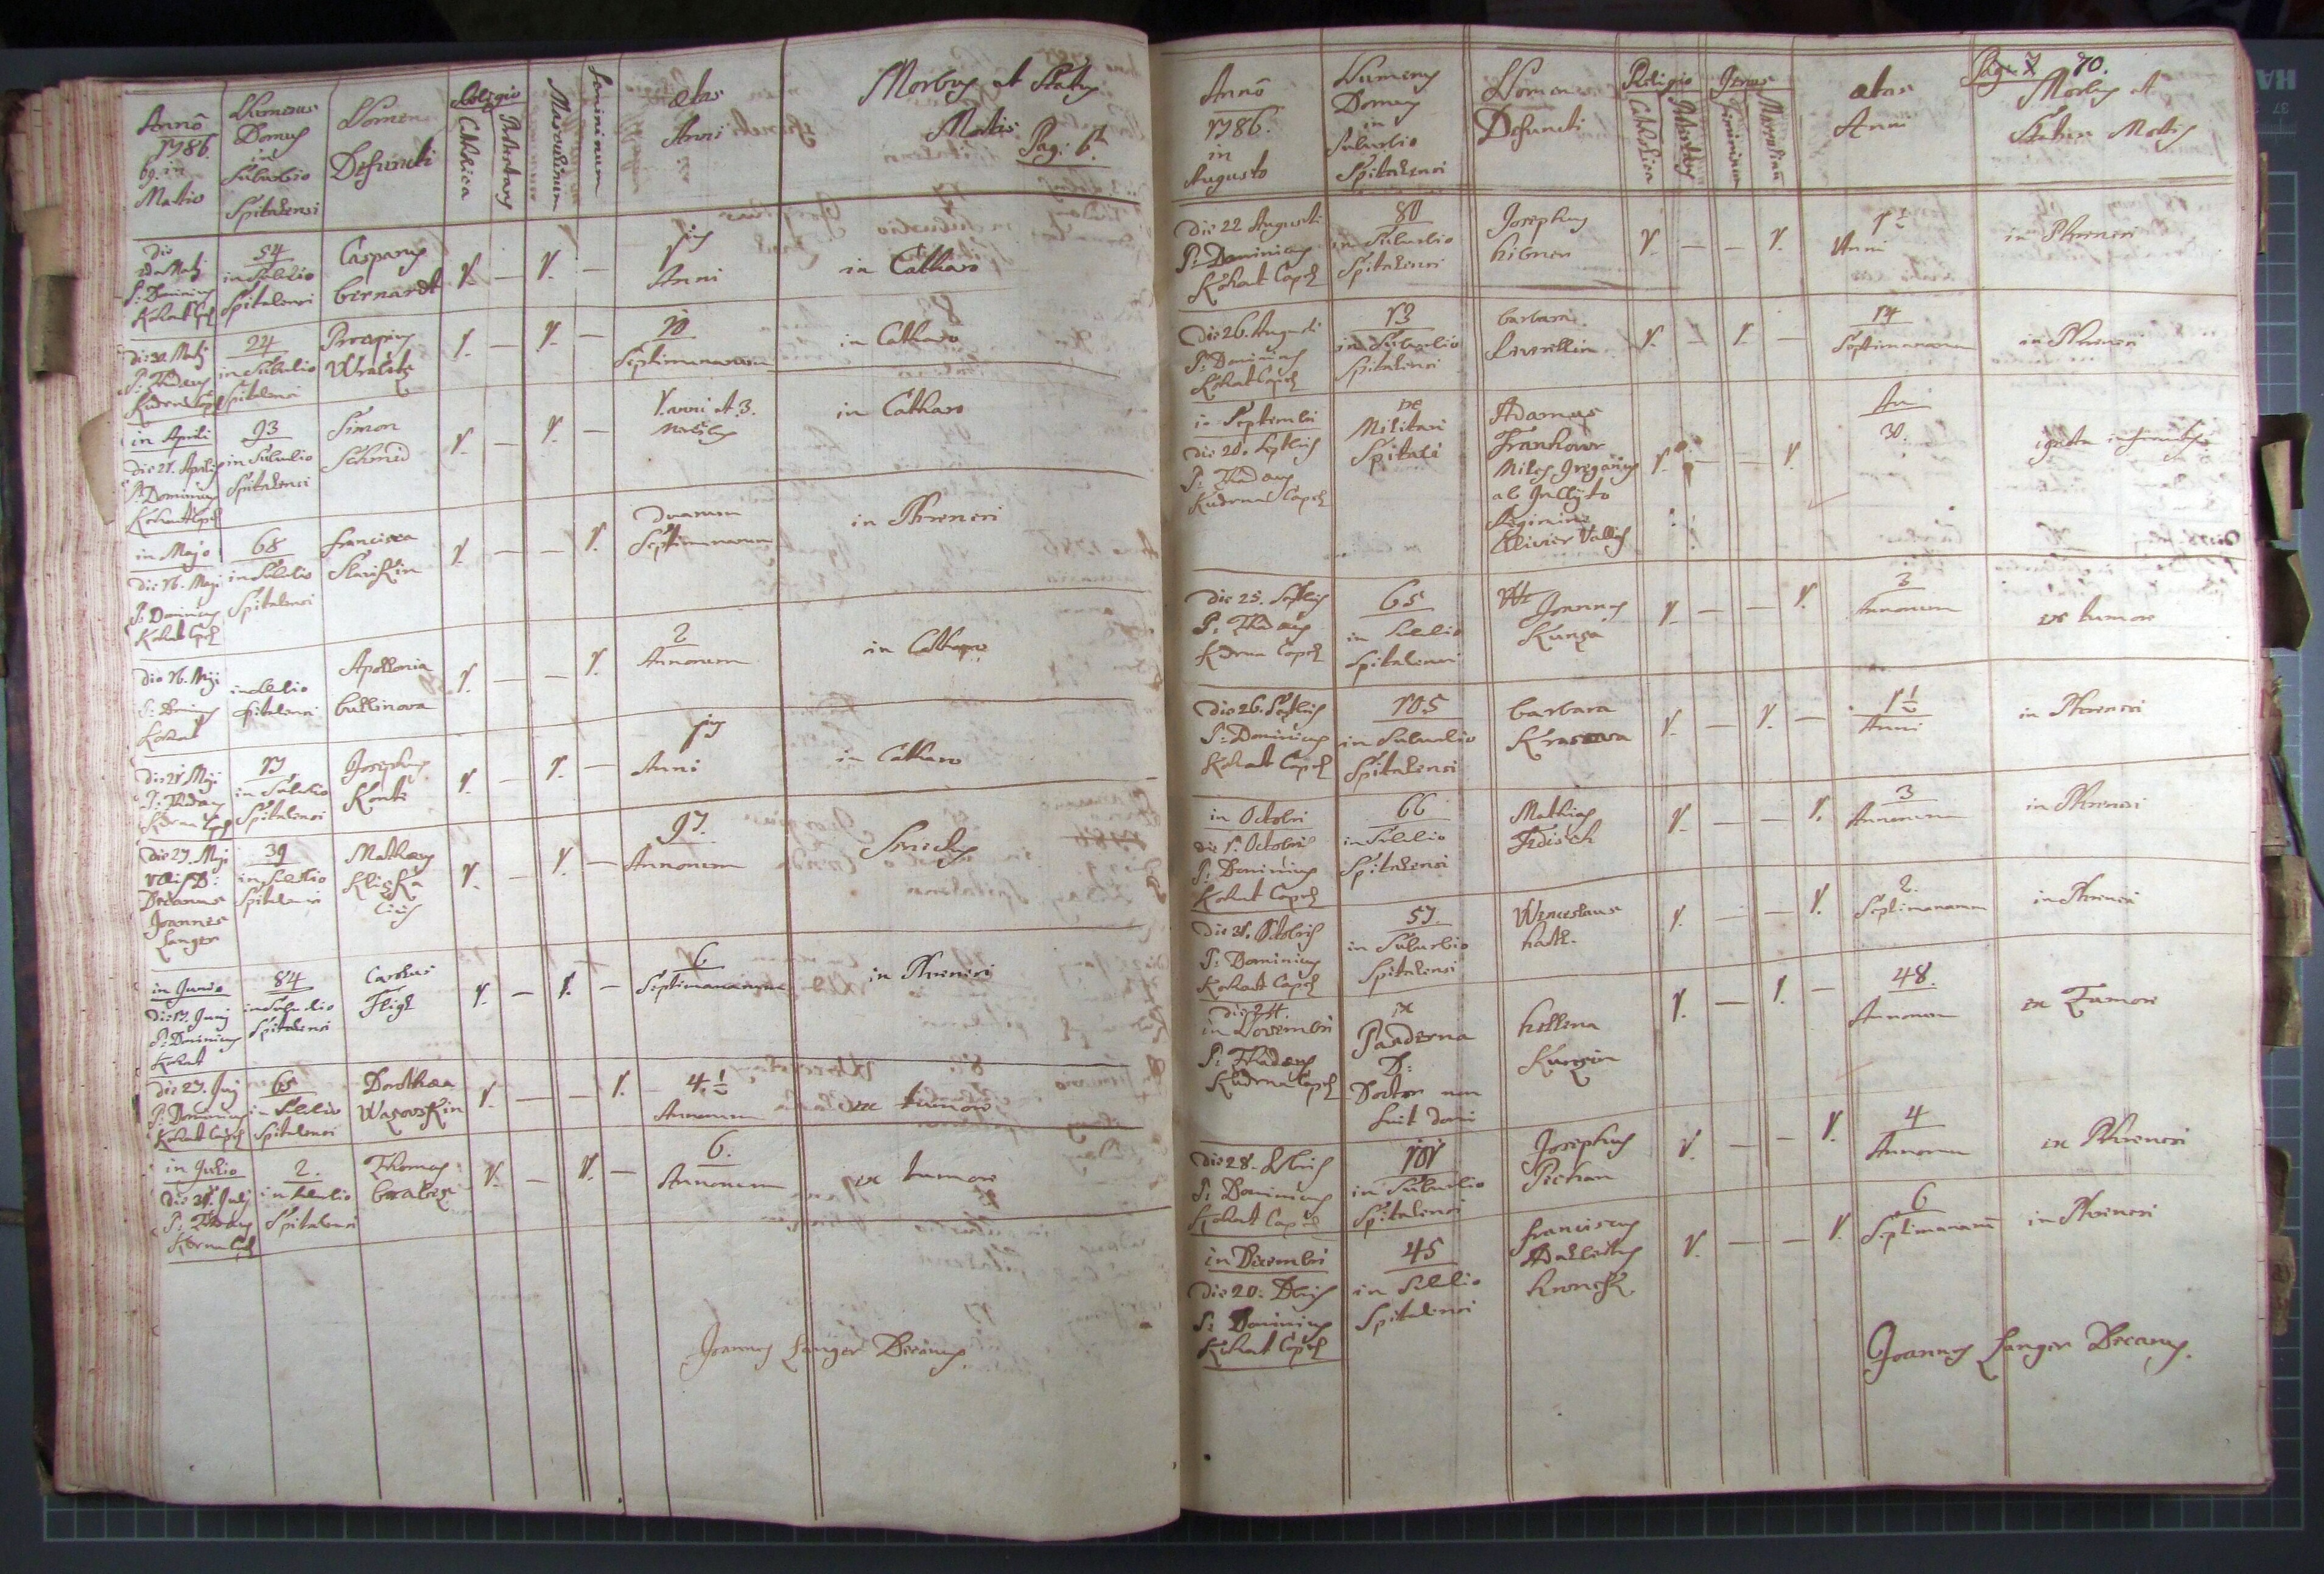 Annô
1786.
69. in
Martio
Numerus
Domus
in
Suburbio
Spitalensi
Nomen
Defuncti
Religio
Catholica
Protestans
Masculinum
Femininum
ætas
Anni
Morbus et Status
Mortis
Pag: 6ta
Die
P: Dominicus
Kohat Capel
54
in Sublio
Spitalensi
Casparus
bernardt
1. — 1. —
Anni
in Catharo
Die 30. Martij
P: Thadæus
Kuderna Capel
24
in Suburbio
Spitalensi
Procopius
Wraletz
1. — 1. —
10
Septimanarum
in Catharo
in Aprili
Die 21. Aprilis
P: Dominicus
Kohat Capel
93
in Suburbio
Spitalensi
Simon
Schmid
1. — 1. —
1. anni et 3.
in Catharo
in Majo
Die 16. Maji
P: Dominicus
Kohat Capel
68
in Sublio
Spitalensi
francisca
Slavikin
1. — — 1.
Duarum
Septimanarum
in Phrenesi
Die 16. Maji
P: Dominicus
Kohat
in Sublio
Spitalensi
Apollonia
bullinova
1. — — 1.
2
Annorum
in Catharo
Die 21 Maji
P: Thadæus
Kderna Capel
17
in Sublio
Spitalensi
Josephus
Konti
1. — 1. —
Anni
in Catharo
Die 27. Maji
Decanus
Joannes
Langer
39
in Sublio
Spitalensi
Mathæus
Kliska
1. — 1. —
97.
Annorum
in Junio
Die 17. Junij
P: Dominicus
Kohat
84
in Suburbio
Spitalensi
Carolus
Fligl
1. — 1. —
6
Septimanarum
in Phrenesi
Die 27. Junj
P: Dominicus
Kohat Capel
65
in Sublio
Spitalensi
Dorothæa
Wazovskin
1. — — 1.
4 1/2
Annorum
ex tumore
in Julio
Die 31. Julij
P: Thadæus
Kderna Capel
2.
in Sublio
Spitalensi
Thomas
1. — 1. —
6.
Annorum
ex tumore
Joannes Langer Decanus.
Annô
1786.
in
Augusto
Numerus
Domus
in
Suburbio
Spitalensi
Nomen
Defuncti
Religio
Catholica
Protestans
Genus
Femininum
Masculinum
ætas
Anni
Pag: 7 70.
Morbus et
Status Mortis
Die 22 Augusti
P: Dominicus
Kohat Capel
80
in Suburbio
Spitalensi
Josephus
hibner
1. — — 1.
1 1/2
Anni
in Phrenesi
Die 26. Augusti
P: Dominicus
Kohat Capel
13
in Suburbio
Spitalensi
barbara
1. — 1. —
14
Septimanarum
in Phrenesi
in Septembri
Die 20. Septbris
P: Thadæus
Kuderna Capel
ex
Militari
Spitali
Adamus
Frankover
Miles Gregarius
ab Inclyto
Regimine
Olivier Vallis
1. — — 1.
An
30.
Die 25. Septbris
P: Thadæus
Kderna Capel
65
in Sublio
Spitalensi
Joannes
Kunza
1. — — 1.
3
Annorum
ex tumore
Die 26. Septbris
P: Dominicus
Kohat Capel
105
in Suburbio
Spitalensi
barbara
Krasova
1. — 1. —
1 1/2
Anni
in Phrenesi
in Octobri
Die 1. Octobris
P: Dominicus
Kohat Capel
66
in Sublio
Spitalensi
Mathias
Fedisch
1. — — 1.
3
Annorum
in Phrenesi
Die 31. Octobris
P: Dominicus
Kohat Capel
57.
in Suburbio
Spitalensi
Wenceslaus
1. — — 1.
2.
Septimanarum
in Phrenesi
Die 24.
in Novembri
P: Thadæus
Kuderna Capel
ex
Paaderna
D:
Doctor non
fuit domi
hellena
Kunzin
1. — 1. —
48.
Annorum
ex Tumore
Die 28. 9bris
P: Dominicus
Kohat Capel
101
in Suburbio
Spitalensi
Josephus
Pichan
1. — — 1.
4
Annorum
ex Phrenesi
in Decembri
Die 20. Xbris
P: Dominicus
Kohat Capel
45
in Sublio
Spitalensi
franciscus
Adalbertus
1. — — 1.
6
Septimanarum
in Phrenesi
Joannes Langer Decanus.